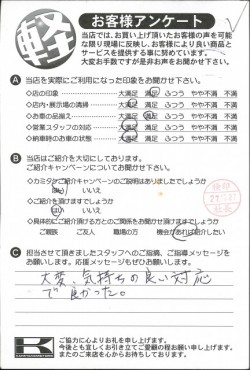 軽
お客様アンケート
当店では、お買い上げ頂いたお客様の声を可能
な限り現場に反映し、お客様により良い商品と
サービスを提供する事に努めています。
大変お手数ですが是非お声をお聞かせ下さい。
A 当店を実際にご利用になった印象をお聞かせ下さい。
◇店の印象 大満足 満足 ふつう やや不満 不満
◇店内・展示場の清掃 大満足 満足 ふつう やや不満 不満
◇お車の品揃え 大満足 満足 ふつう やや不満 不満
◇営業スタッフの対応 大満足 満足 ふつう やや不満 不満
◇納車時のお車の状態 大満足 満足 ふつう やや不満 不満
B 当店はご紹介を大切にしております。
ご紹介キャンペーンについてお聞かせ下さい。
◇カミタケご紹介キャンペーンのご説明はありましたでしょうか
はい いいえ
◇ご紹介を頂けますでしょうか
はい いいえ
◇具体的にご紹介頂ける方とのご関係をお聞かせ頂けますでしょうか
ご親族 ご友人 職場の方 機会があれば紹介したい
C 担当させて頂きましたスタッフへのご指摘、ご指導メッセージを
お願いします。応援メッセージもぜひお願いします。
大変、気持ちの良い対応
で良かった。
ご協力に心よりお礼を申し上げます。
今後とも宜しくお引き立てご愛顧の程お願い申し上げます。
またのご来店を心からお待ちしております。